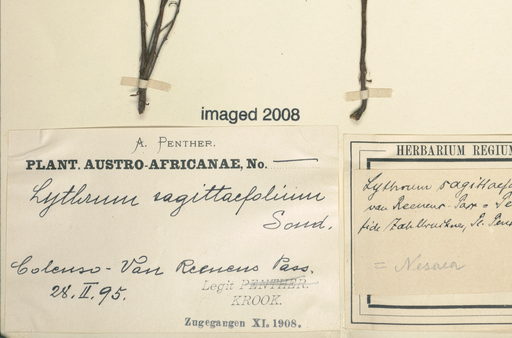 imaged 2008
A. PENTHER.
PLANT. AUSTRO-AFRICANAE, No. —
Lythrum sagittaefolium
Sond.
Colenso - Van Reenens Pass.
28. II. 95.
Legit PENTHER.
KROOK.
Zugegangen XI. 1908.
HERBARIUM REGIUM
Lythrum sagittaef
van Reenens Pass
fide Zahlbruckner, Pl. Pent
= Nesaea